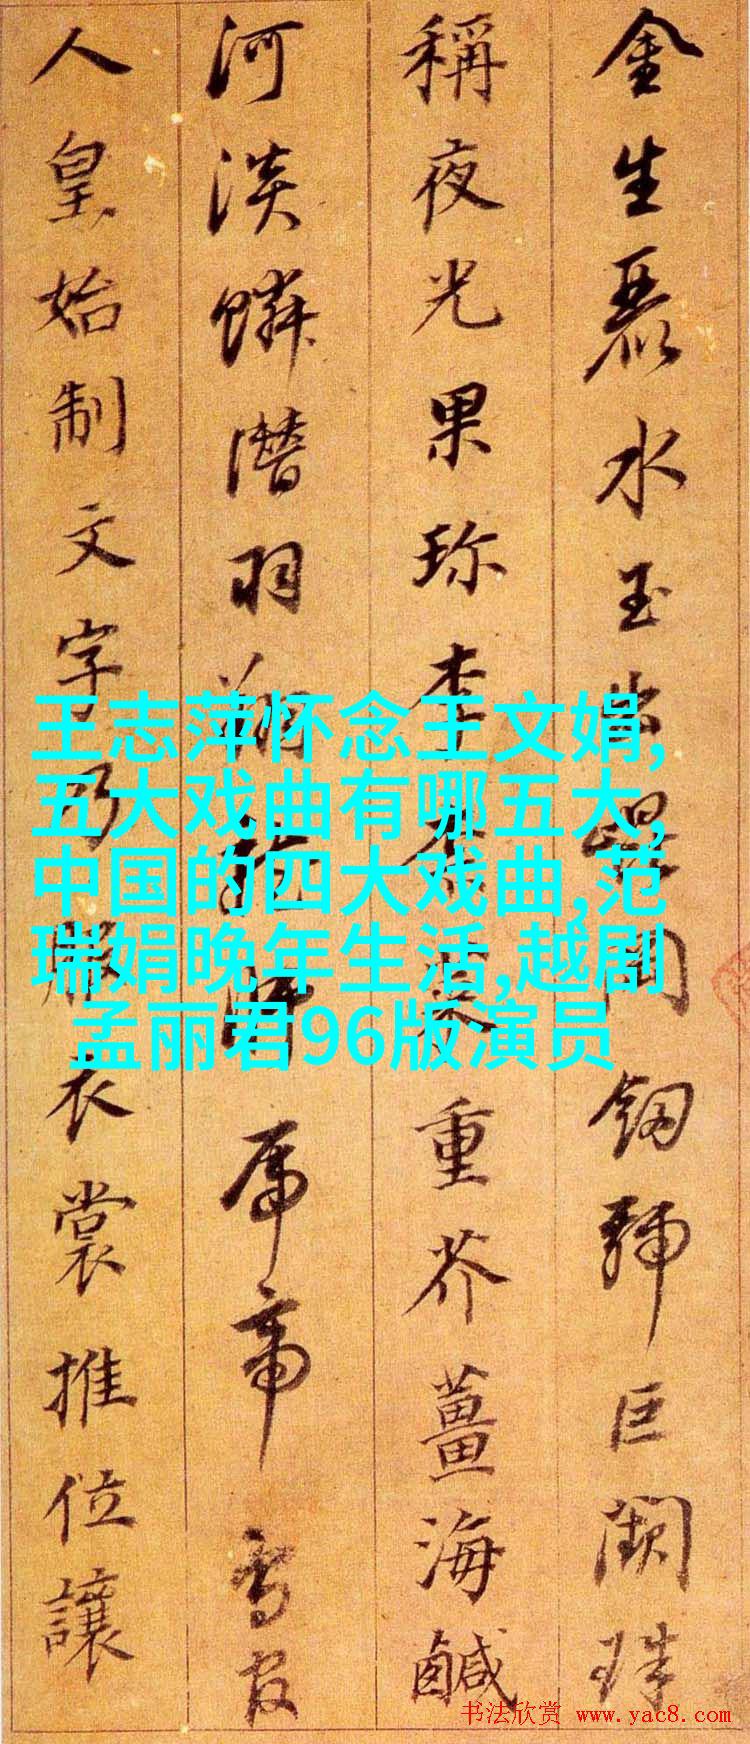 金生麗水玉出崑岡釰號巨闕珠
稱夜光果珎李柰菜重芥薑海鹹
河淡鱗潛羽翔龍師帝鳥官
人皇始制文字乃服衣裳推位讓
王志萍怀念王文娟,
五大戏曲有哪五大,
中国的四大戏曲,范
瑞娟晚年生活,越剧
孟丽君96版演员
书法欣赏 www.yac8.com